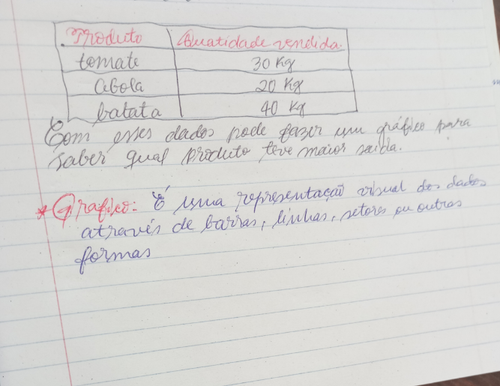 Produto Quatidade vendida
tomate 30 Kg
Cebola 20 Kg
batata 40 Kg
Com esses dados pode fazer um gráfico para
saber qual produto teve maior saída.
* Grafico: É uma representação visual dos dados
através de barras, linhas, setores ou outras
formas